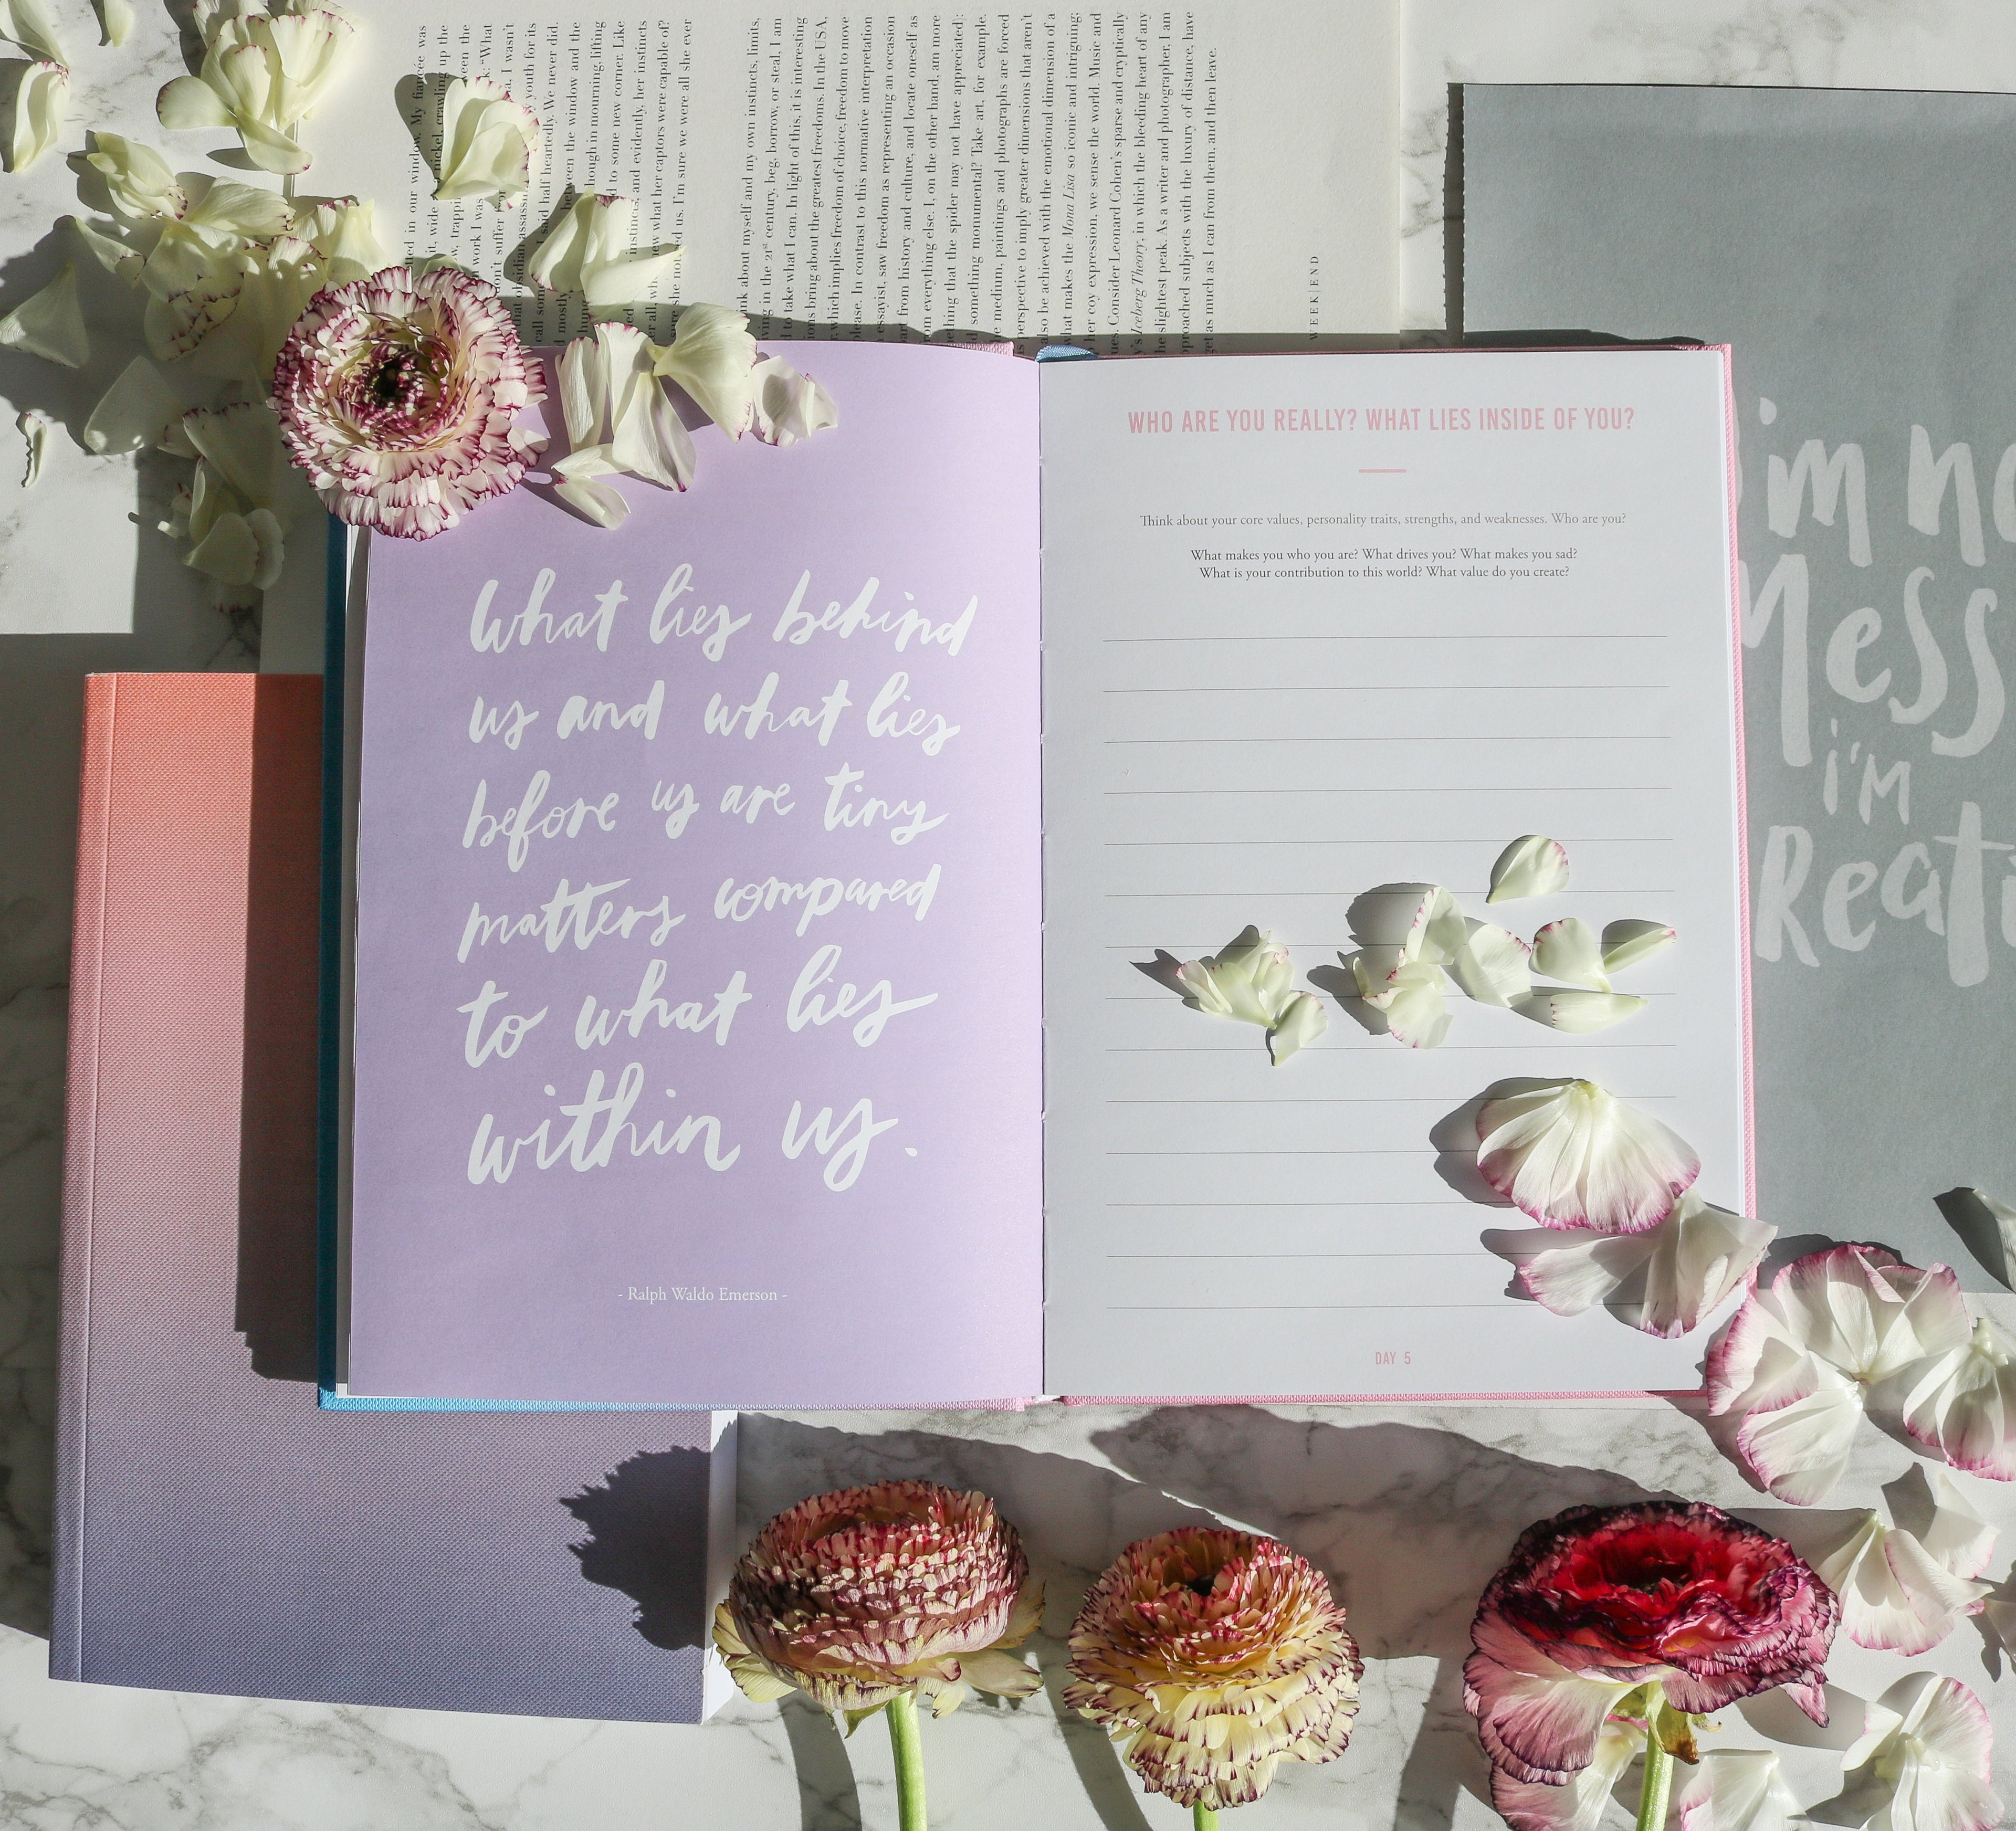 What lies behind
us and what lies
before us are tiny
matters compared
to what lies
within us.
- Ralph Waldo Emerson -
WHO ARE YOU REALLY? WHAT LIES INSIDE OF YOU?
Think about your core values, personality traits, strengths, and weaknesses. Who are you?
What makes you who you are? What drives you? What makes you sad?
What is your contribution to this world? What value do you create?
DAY 5
in our window. My fiancée was
it, wide nickel, crawling up the
work I was
don't suffer
that obsidian assassin
I said half heartedly. We never did.
between the window and the
though in mourning, lifting
to some new corner. Like
instincts, and evidently, her instincts
what her captors were capable of?
us. I'm sure we were all she ever
about myself and my own instincts, limits,
living in the 21st century, beg, borrow, or steal, I am
to take what I can. In light of this, it is interesting
bring about the greatest freedoms. In the USA,
which implies freedom of choice, freedom to move
please. In contrast to this normative interpretation
essayist, saw freedom as representing an occasion
from history and culture, and locate oneself as
everything else. I, on the other hand, am more
thing that the spider may not have appreciated):
something monumental? Take art, for example.
medium, paintings and photographs are forced
perspective to imply greater dimensions that aren't
also be achieved with the emotional dimension of a
what makes the Mona Lisa so iconic and intriguing;
her coy expression, we sense the world. Music and
Consider Leonard Cohen's sparse and cryptically
Iceberg Theory, in which the bleeding heart of any
slightest peak. As a writer and photographer, I am
subjects with the luxury of distance, have
get as much as I can from them, and then leave.
WEEK|END
I'm
Mess
I'M